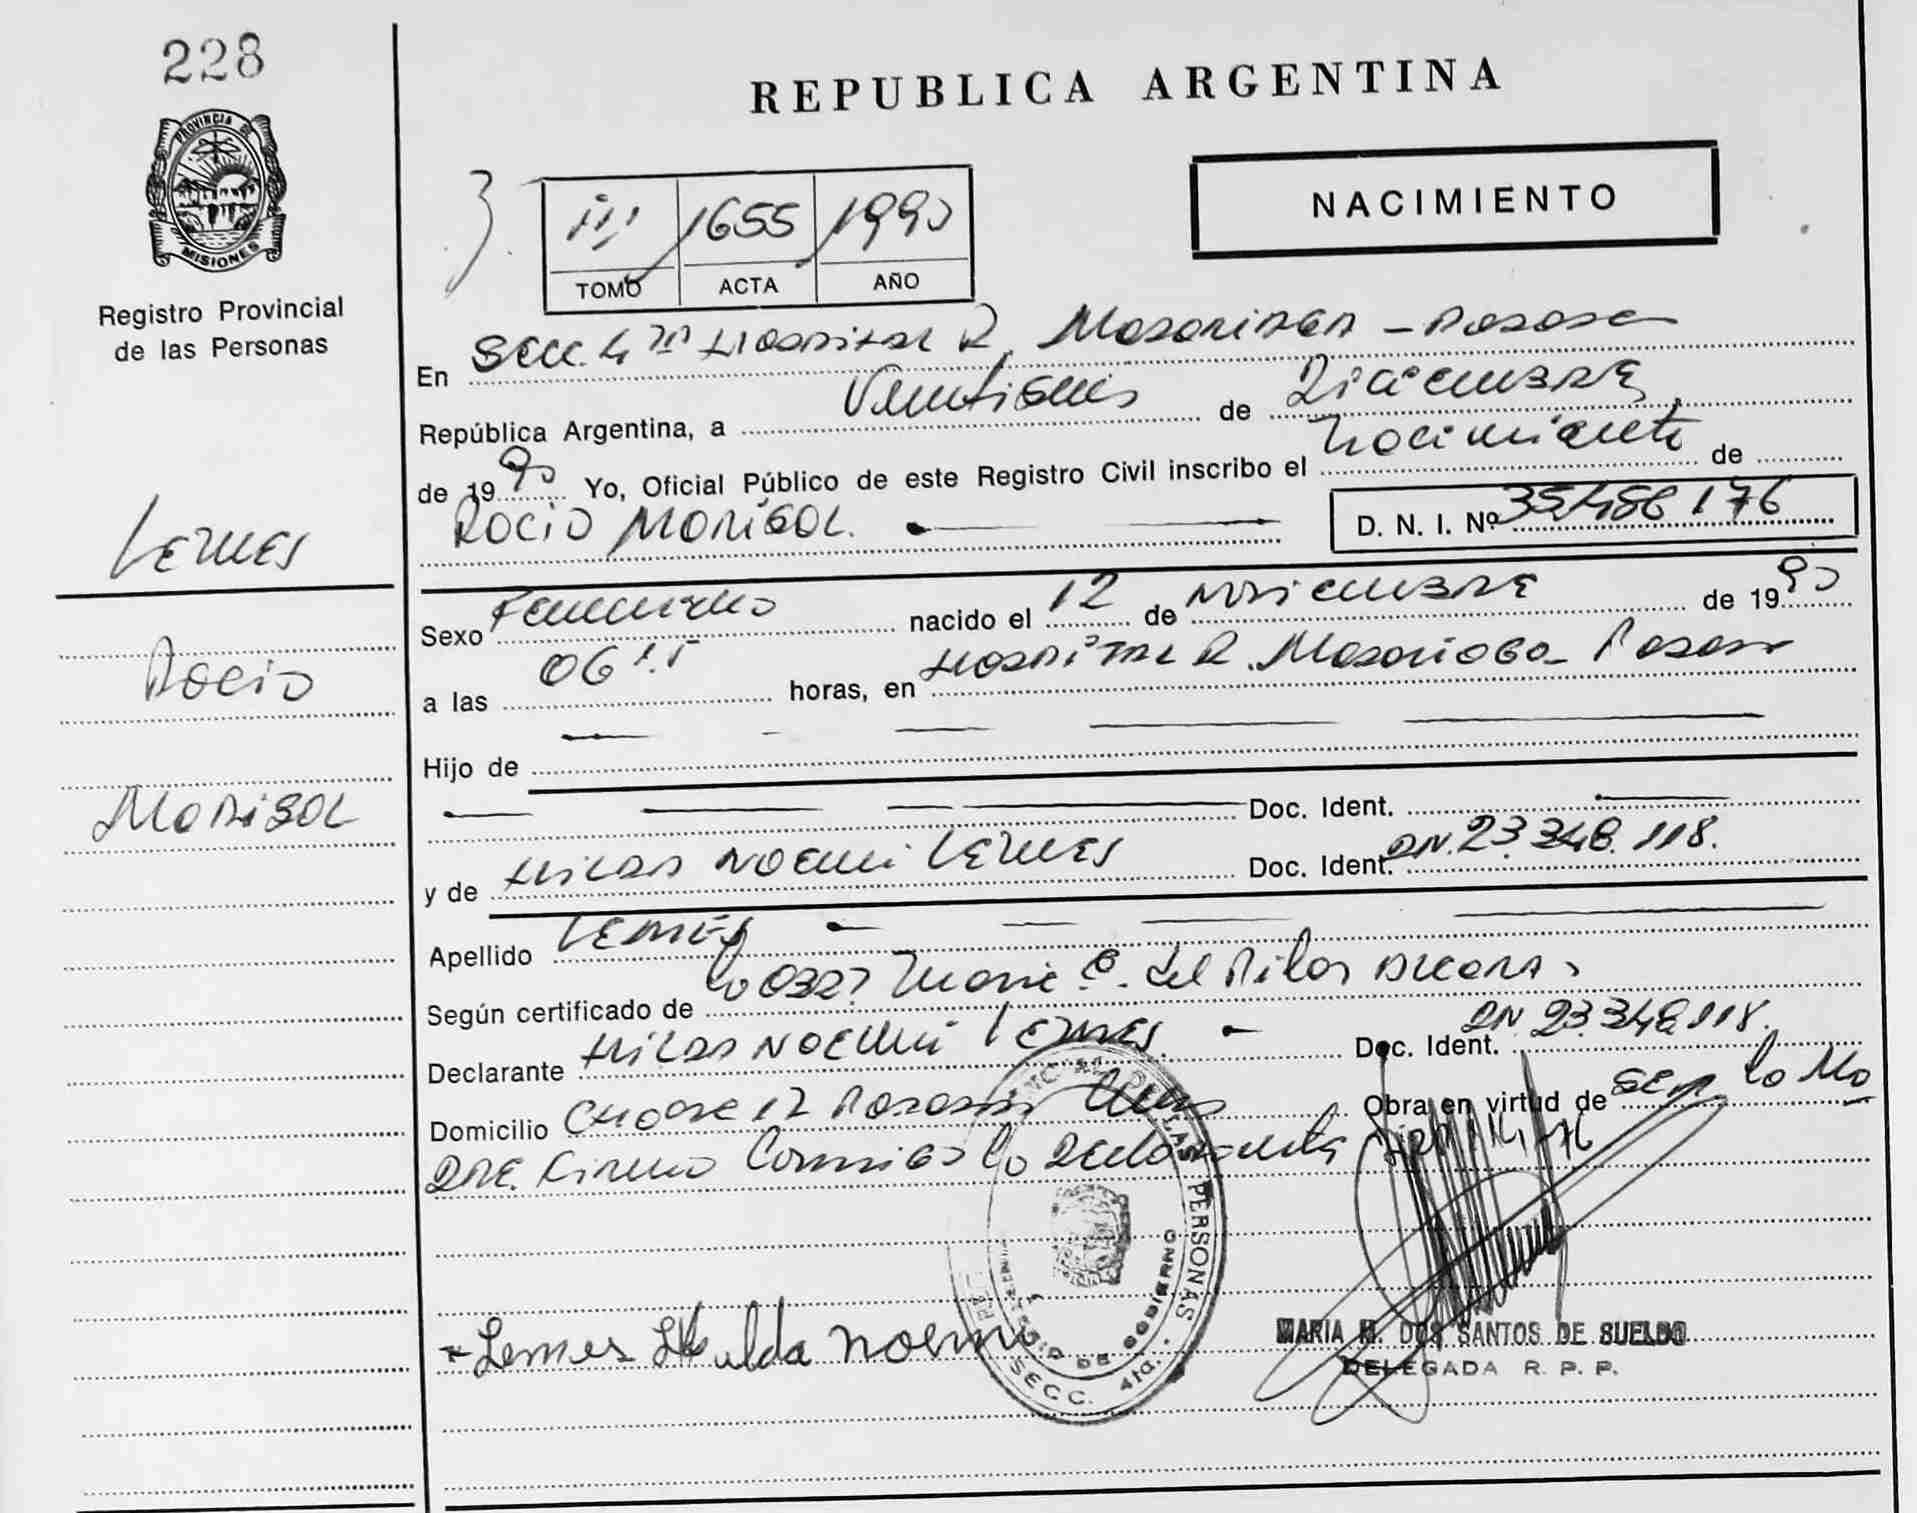 228
REPUBLICA ARGENTINA
PROVINCIA DE
MISIONES
Registro Provincial
de las Personas
III 1655 1990
TOMO ACTA AÑO
NACIMIENTO
En Secc. 4ta Hospital R. Madariaga - Posadas
República Argentina, a Veintiseis de Diciembre
de 1990 Yo, Oficial Público de este Registro Civil inscribo el Nacimiento de
Rocio Marisol. D. N. I. Nº 35.486.176
Lemes
Rocio
Marisol
Sexo Femenino nacido el 12 de Noviembre de 1990
a las 06 horas, en Hospital R. Madariaga - Posadas
Hijo de
Doc. Ident.
y de Hilda Noemi Lemes Doc. Ident. DN. 23.348.118.
Apellido Lemes
Según certificado de Maria del Pilar
Declarante Hilda Noemi Lemes. Doc. Ident. DN. 23.348.118.
Domicilio Chacra 12 Posadas Mnes Obra en virtud de ser la Ma
dre. Firma Conmigo la Declarante
PERSONAS
MINISTERIO DE GOBIERNO
SECC. 4ta.
Lemes Hilda Noemi
MARIA M. DOS SANTOS DE SUELDO
DELEGADA R. P. P.